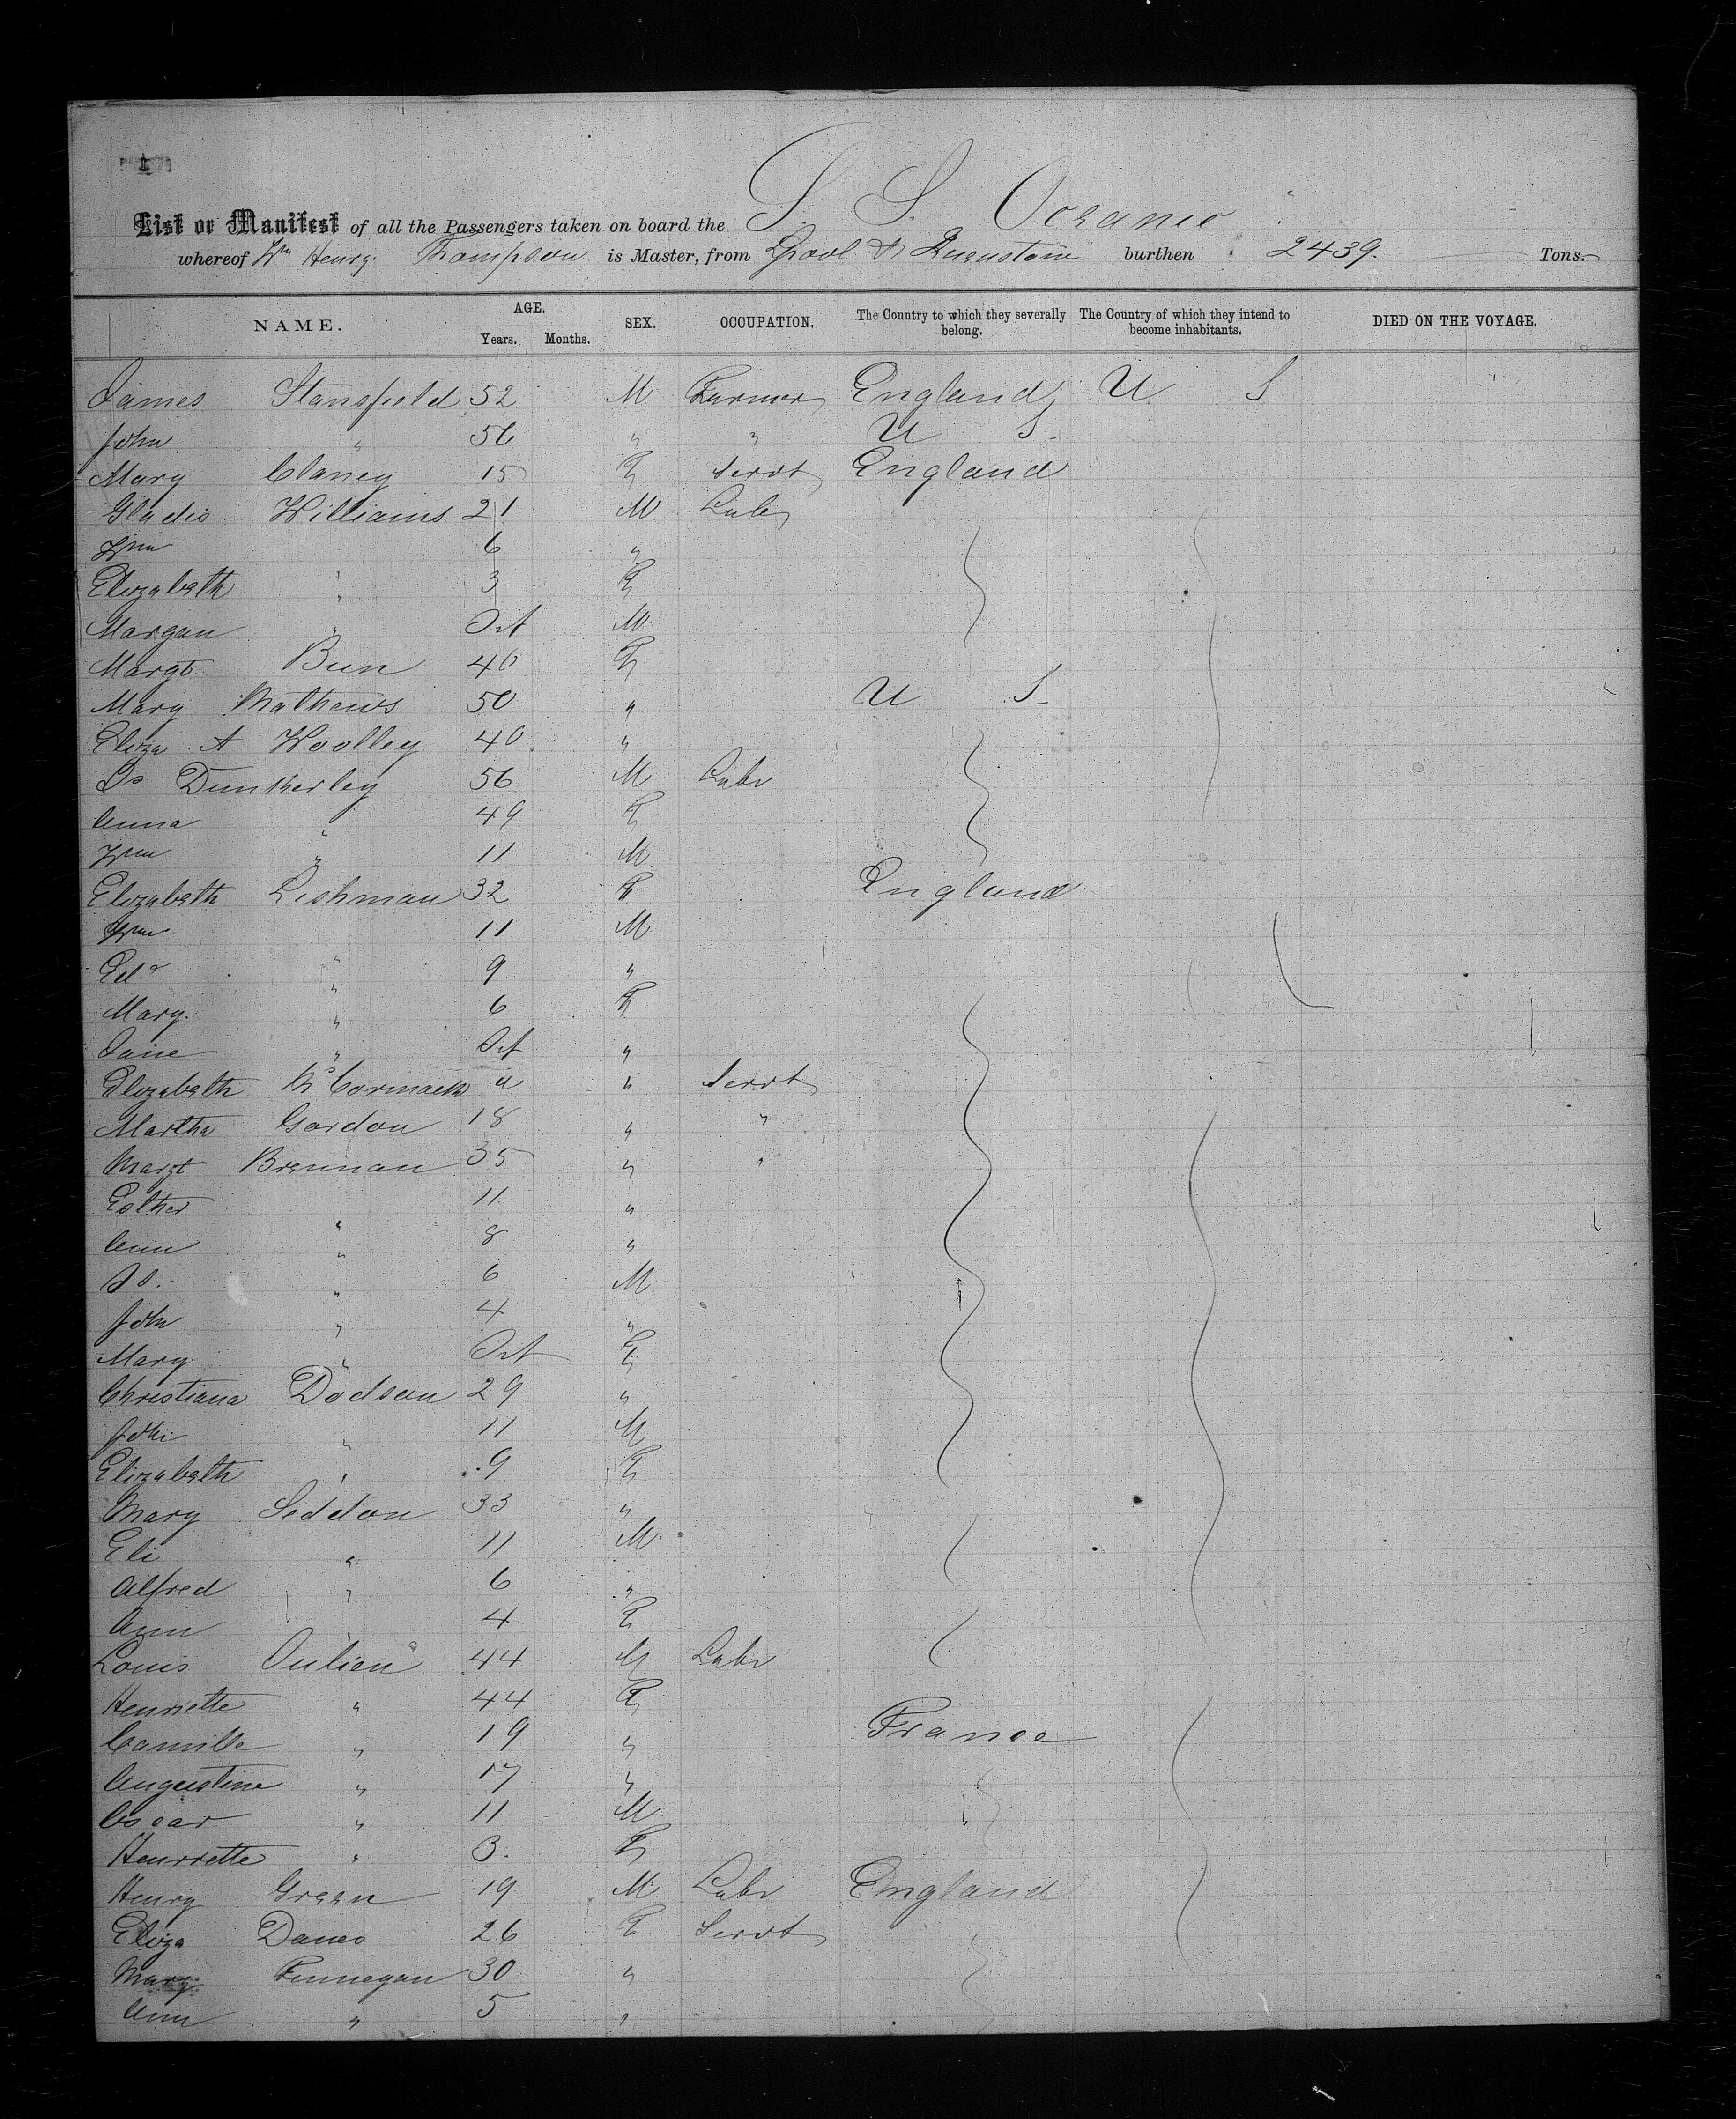 S. S. Oceanic
List or Manifest of all the Passengers taken on board the
whereof Wm Henry Thompson is Master, from Lpool & Queenstown burthen 2439. Tons.
NAME. AGE. Years. Months. SEX. OCCUPATION. The Country to which they severally belong. The Country of which they intend to become inhabitants. DIED ON THE VOYAGE.
James Stansfield 52 M Farmer England U S
John " 56 " " U S
Mary Clancy 15 F Servt England
Williams 21 M Lab
Wm 6 "
Elizabeth " 3 F
Morgan " Inft M
Margt 40 F
Mary Mathews 50 " U S
Eliza A Woolley 40 "
Js Dunkerley 56 M Labr
Anna " 49 F
Wm " 11 M
Elizabeth Lishman 32 F England
Wm " 11 M
Edd " 9 "
Mary " 6 F
Jane " Inft "
Elizabeth McCormack " Servt
Martha Gordon 18 " "
Margt Brennan 35 " "
Esther " 11 "
Ann " 8 "
Js. " 6 M
John " 4 "
Mary " Inft F
Christiana Dodson 29 "
John " 11 M
Elizabeth " 9 F
Mary Seddon 33 "
Eli " 11 M
Alfred " 6 "
Ann " 4 F
Louis Julien 44 M Labr
Henriette " 44 F
Camille " 19 " France
Augustine " 17 "
Oscar " 11 M
Henriette " 3. F
Henry Green 19 M Labr England
Eliza 26 F Servt
Mary Finnegan 30 "
Ann " 5 "